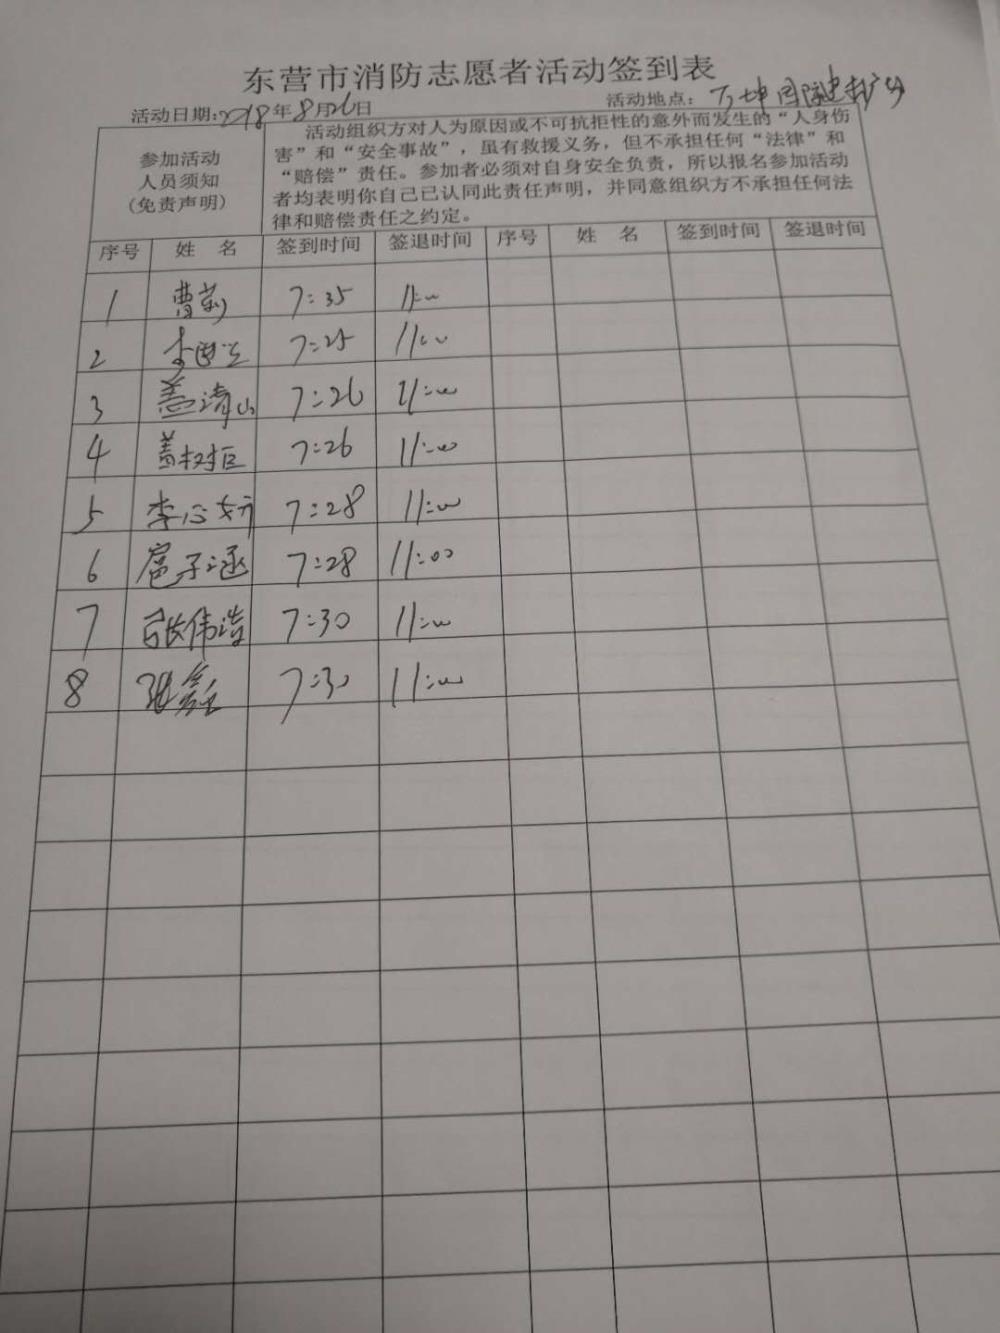 东营市消防志愿者活动签到表
活动日期:2018年8月26日 活动地点:万坤国际
参加活动
人员须知
(免责声明)
活动组织方对人为原因或不可抗拒性的意外而发生的“人身伤
害”和“安全事故”,虽有救援义务,但不承担任何“法律”和
“赔偿”责任。参加者必须对自身安全负责,所以报名参加活动
者均表明你自己已认同此责任声明,并同意组织方不承担任何法
律和赔偿责任之约定。
序号 姓 名 签到时间 签退时间 序号 姓 名 签到时间 签退时间
1 曹莉 7:35 11:00
2 李 7:25 11:00
3 盖清山 7:26 11:00
4 盖树臣 7:26 11:00
5 李心妍 7:28 11:00
6 扈子涵 7:28 11:00
7 张伟浩 7:30 11:00
8 张鑫 7:30 11:00